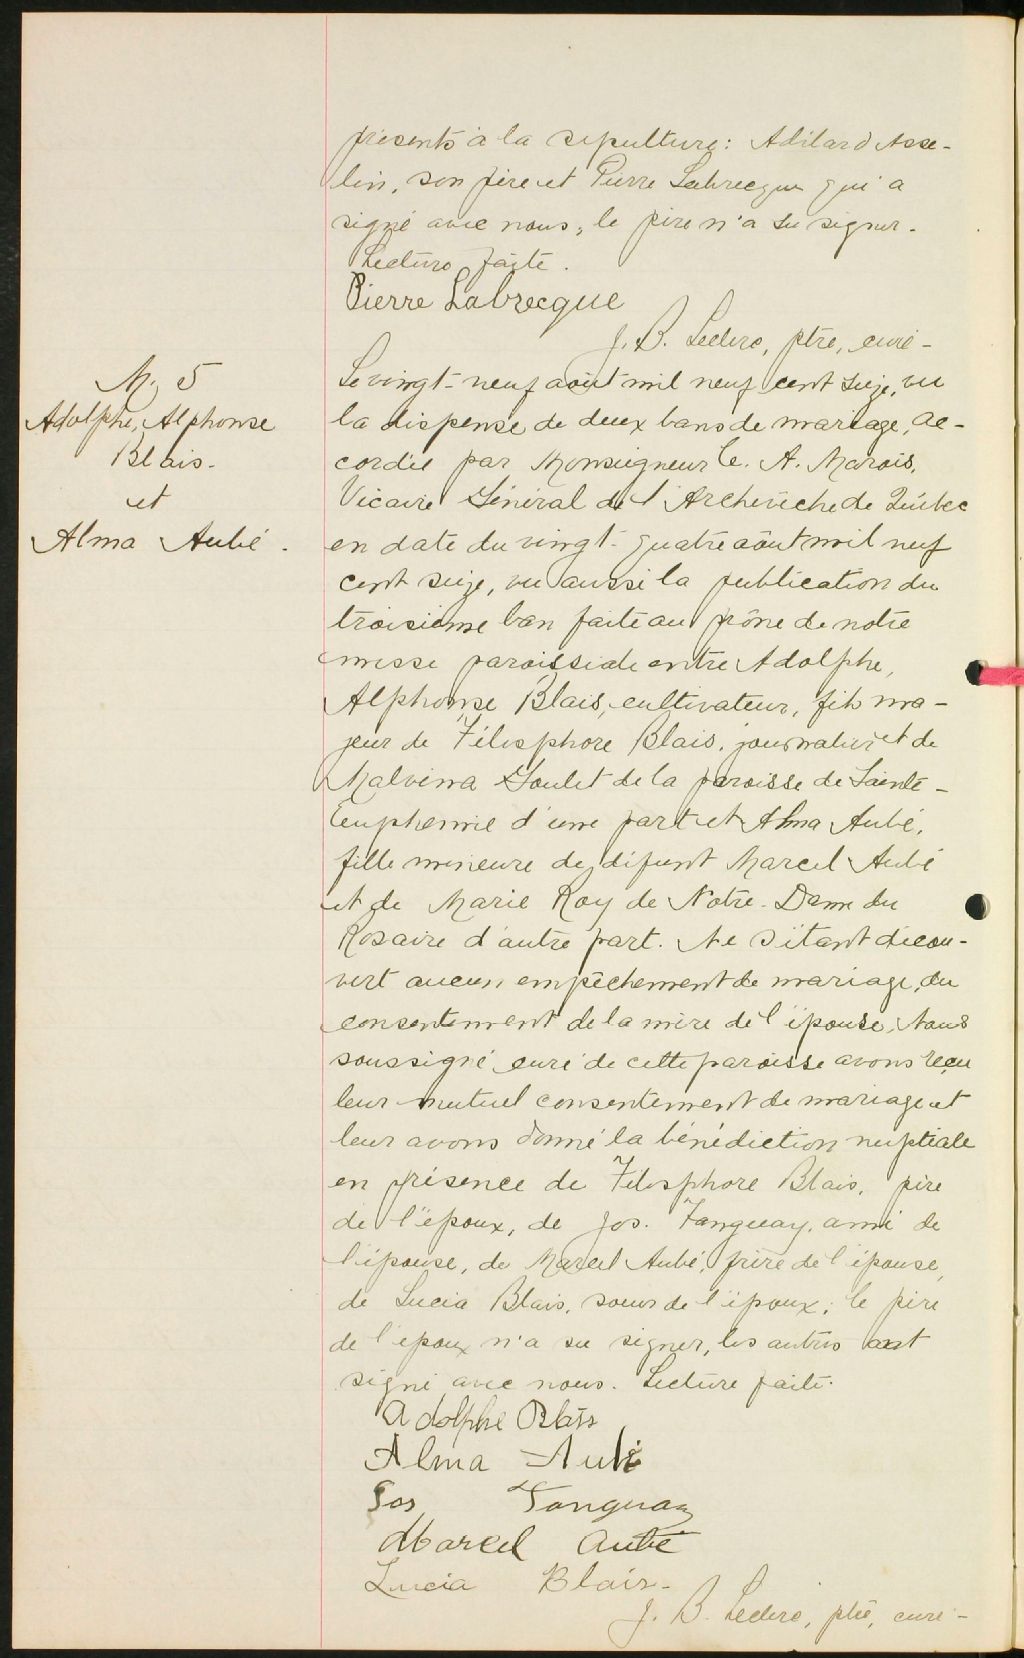 présents à la sépulture: Adélard Asse-
lin, son père et Pierre Labrecque qui a
signé avec nous, le père n'a su signer.
Lecture faite.
Pierre Labrecque
J. B. Leclerc, ptre, curé-
M. 5
Adolphe, Alphonse
Blais.
et
Alma Aubé.
Le vingt-neuf août mil neuf cent seize, vu
la dispense de deux bans de mariage, ac-
cordée par Monseigneur C. A. Marois,
Vicaire Général de l'Archevêché de Québec
en date du vingt-quatre août mil neuf
cent seize, vu aussi la publication du
troisième ban faite au prône de notre
messe paroissiale entre Adolphe,
Alphonse Blais, cultivateur, fils ma-
jeur de Télesphore Blais, journalier et de
Malvina Goulet de la paroisse de Sainte-
Euphémie d'une part et Alma Aubé,
fille mineure de défunt Marcel Aubé
et de Marie Roy de Notre-Dame du
Rosaire d'autre part. Ne s'étant décou-
vert aucun empêchement de mariage, du
consentement de la mère de l'épouse, Nous
soussigné curé de cette paroisse avons reçu
leur mutuel consentement de mariage et
leur avons donné la bénédiction nuptiale
en présence de Télesphore Blais, père
de l'époux, de Jos. Tanguay, ami de
l'épouse, de Marcel Aubé, frère de l'épouse,
de Lucia Blais, soeur de l'époux; le père
de l'époux n'a su signer, les autres ont
signé avec nous. Lecture faite.
Adolphe Blais
Alma Aubé
Jos Tanguay
Marcel Aubé
Lucia Blais-
J. B. Leclerc, ptre, curé-